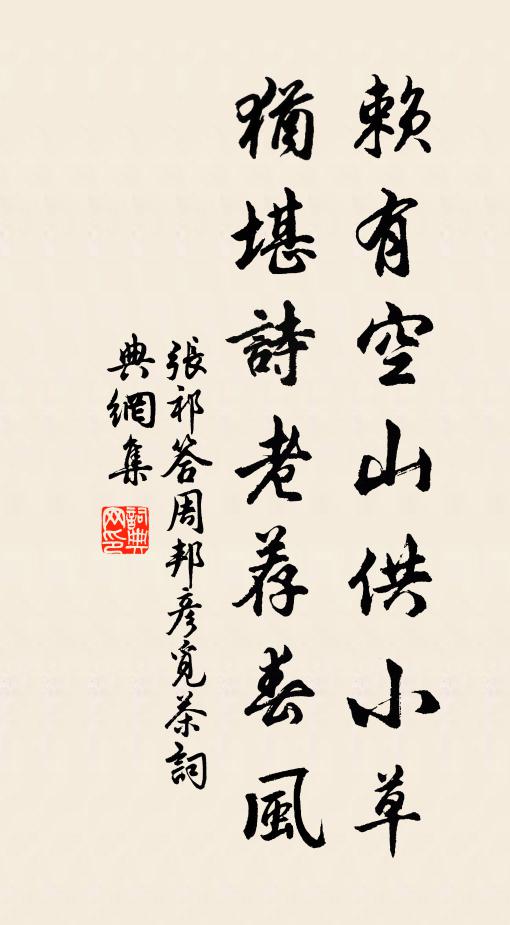 賴有空山供小草
猶堪詩老荐春風
張祁答周邦彥覓茶詞
典網集
詞典
网印